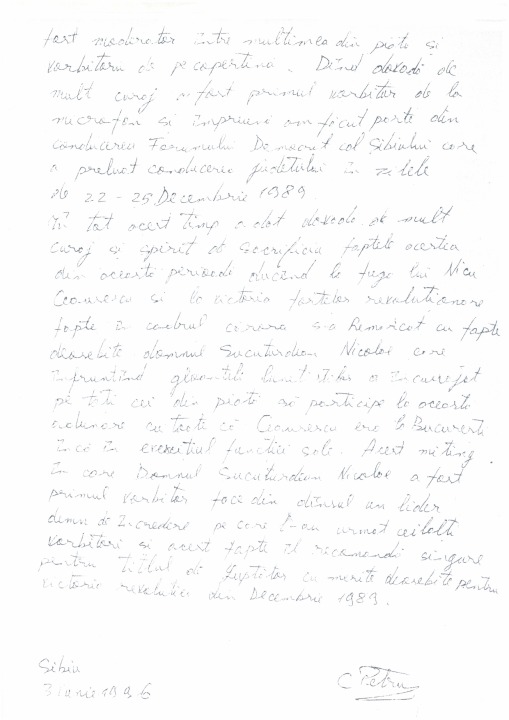 fost moderator între multimea din piata si
vorbitorii de pe copertina. Dînd dovadă de
mult curaj a fost primul vorbitor de la
microfon si împreună am făcut parte din
conducerea Forumului Democrat al Sibiului care
a preluat conducerea judetului în zilele
de 22 - 25 Decembrie 1989
În tot acest timp a dat dovada de mult
curaj si spirit de sacrificiu faptele acestea
din această perioadă ducand la fuga lui Nicu
Ceausescu si la victoria fortelor revolutionare
fapte în cadrul cărora s-a Remarcat cu fapte
deosebite domnul Suciturdean Nicolae care
înfruntînd gloantele lunetistilor a încurajat
pe toti cei din piată să participe la această
actionare cu toate că Ceausescu era la Bucuresti
încă în exercitiul functiei sale. Acest miting
în care Domnul Suciturdean Nicolae a fost
primul vorbitor face din dînsul un lider
demn de Încredere pe care l-au urmat ceilalti
vorbitori si acest fapte îl recomandă singure
pentru titlul de luptător cu merite deosebite pentru
victoria revolutiei din Decembrie 1989.
Sibiu
3 Iunie 1996
C Petru